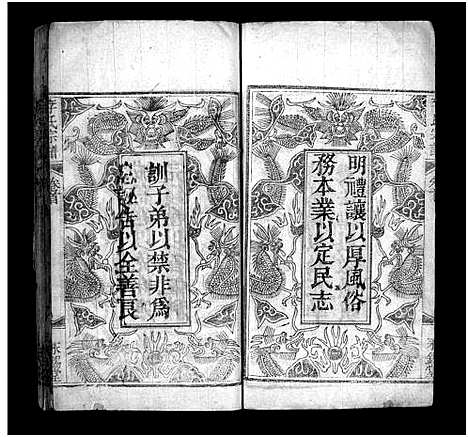 明禮讓以厚風俗
務本業以定民志
訓子弟以禁非為
息誣告以全善良
氏宗譜
卷首